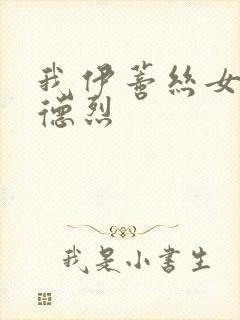 我伊蕾丝女
德烈
我是小書生